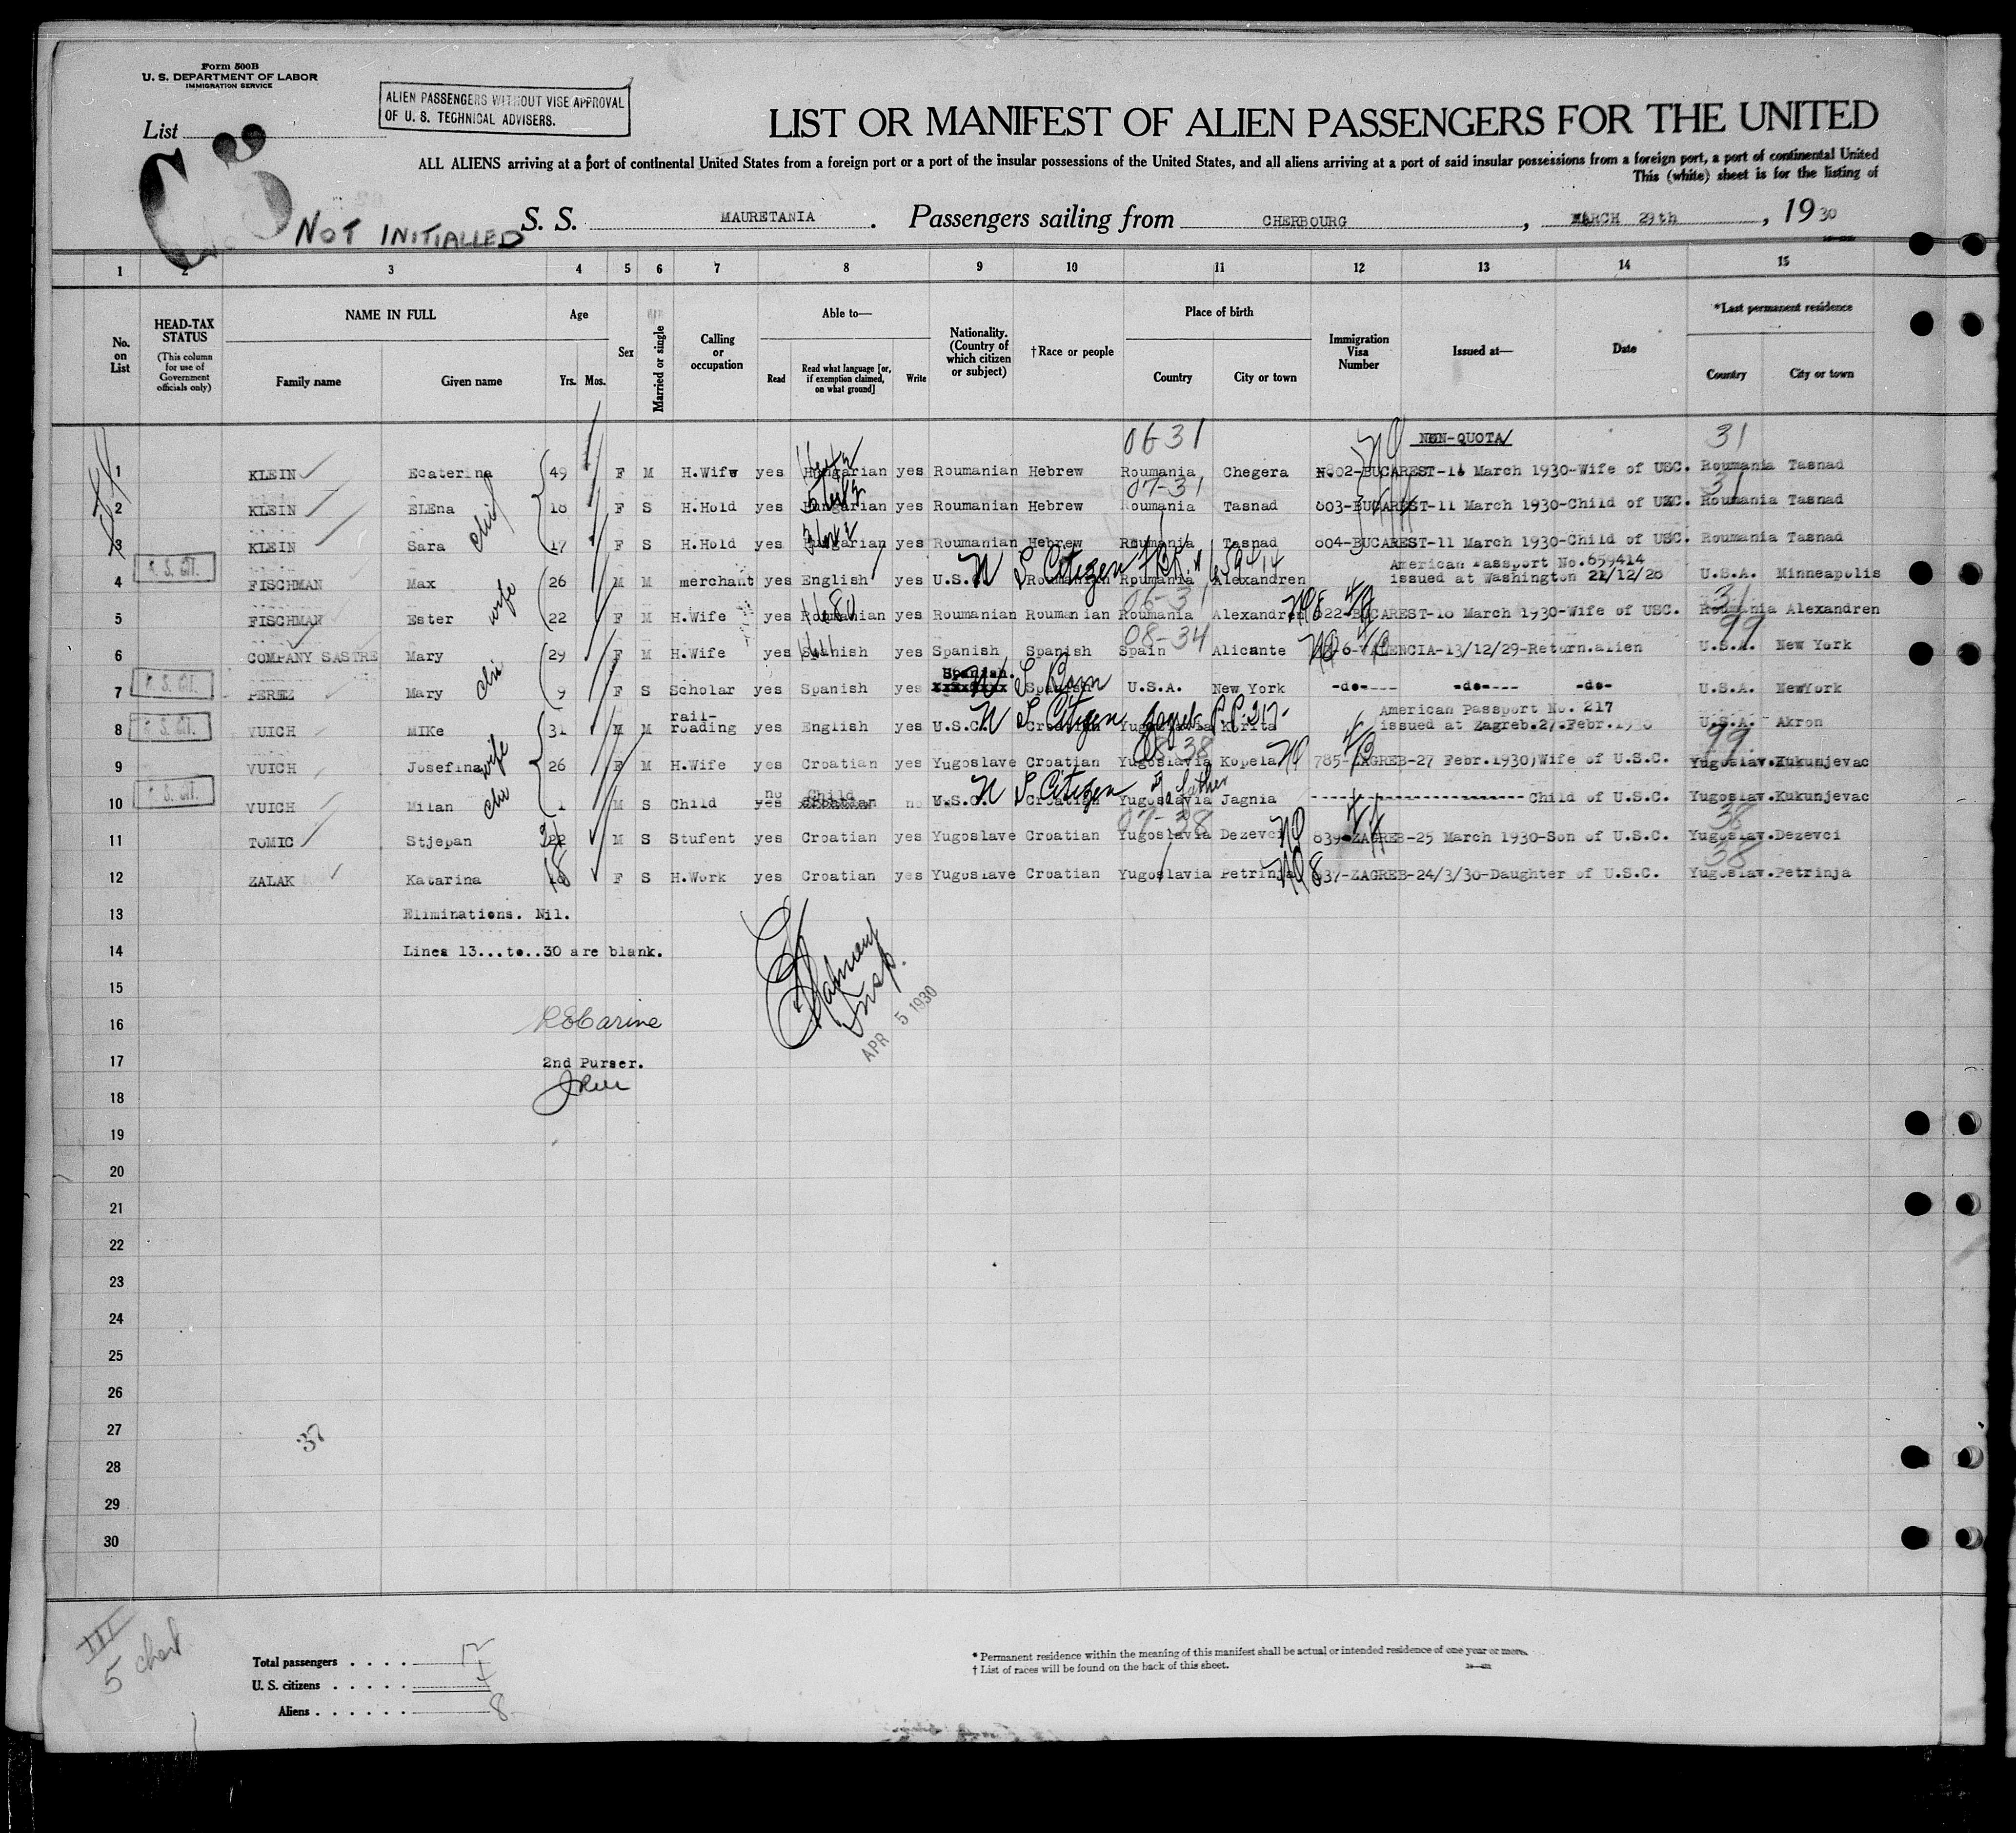 Form 500B
U. S. DEPARTMENT OF LABOR
IMMIGRATION SERVICE
ALIEN PASSENGERS WITHOUT VISE APPROVAL
OF U. S. TECHNICAL ADVISERS.
List
LIST OR MANIFEST OF ALIEN PASSENGERS FOR THE UNITED
ALL ALIENS arriving at a port of continental United States from a foreign port or a port of the insular possessions of the United States, and all aliens arriving at a port of said insular possessions from a foreign port, a port of continental United
This (white) sheet is for the listing of
NOT INITIALLED
S. S. MAURETANIA. Passengers sailing from CHERBOURG, MARCH 29th, 1930
1 2 3 4 5 6 7 8 9 10 11 12 13 14 15
No. on List
HEAD-TAX STATUS
(This column for use of Government officials only)
NAME IN FULL
Family name Given name
Age
Yrs. Mos.
Sex
Married or single
Calling or occupation
Able to—
Read
Read what language [or, if exemption claimed, on what ground]
Write
Nationality. (Country of which citizen or subject)
†Race or people
Place of birth
Country City or town
Immigration Visa Number
Issued at—
Date
*Last permanent residence
Country City or town
06-31 NON-QUOTA 31
1 KLEIN Ecaterina 49 F M H.Wife yes Hungarian yes Roumanian Hebrew Roumania Chegera 802-BUCAREST-11 March 1930-Wife of USC. Roumania Tasnad
07-31 31
2 KLEIN ELEna 18 F S H.Hold yes Hungarian yes Roumanian Hebrew Roumania Tasnad 803-BUCAREST-11 March 1930-Child of USC. Roumania Tasnad
3 KLEIN Sara 17 F S H.Hold yes Hungarian yes Roumanian Hebrew Roumania Tasnad 804-BUCAREST-11 March 1930-Child of USC. Roumania Tasnad
American Passport No.659414
4 FISCHMAN Max 26 M M merchant yes English yes U.S. Citizen Roumania Alexandren issued at Washington U.S.A. Minneapolis
06-31 31
5 FISCHMAN Ester wife 22 F M H.Wife yes Roumanian yes Roumanian Roumanian Roumania Alexandren 822-BUCAREST-18 March 1930-Wife of USC. Roumania Alexandren
08-34 99
6 COMPANY SASTRE Mary 29 F M H.Wife yes Spanish yes Spanish Spanish Spain Alicante VALENCIA-13/12/29-Return.alien U.S.A. New York
Spanish.
7 PEREZ Mary 9 F S Scholar yes Spanish yes Spanish U.S.A. New York -do---- -do---- -do- U.S.A. NewYork
rail- American Passport No. 217
8 VUICH MIKe 31 M M roading yes English yes U.S.C. Citizen Croatian Yugoslavia Korita issued at Zagreb.27.Febr.1930 U.S.A. Akron
08-38 99
9 VUICH Josefina wife 26 F M H.Wife yes Croatian yes Yugoslave Croatian Yugoslavia Kopela 785-ZAGREB-27 Febr.1930)Wife of U.S.C. Yugoslav.Kukunjevac
no Child
10 VUICH Milan 1 M S Child no U.S.C. Citizen Croatian father Yugoslavia Jagnia Child of U.S.C. Yugoslav.Kukunjevac
07-38 38
11 TOMIC Stjepan M S Stufent yes Croatian yes Yugoslave Croatian Yugoslavia Dezevci 839-ZAGREB-25 March 1930-Son of U.S.C. Yugoslav.Dezevci
38
12 ZALAK Katarina 18 F S H.Work yes Croatian yes Yugoslave Croatian Yugoslavia Petrinja 837-ZAGREB-24/3/30-Daughter of U.S.C. Yugoslav.Petrinja
13 Eliminations. Nil.
14 Lines 13...to..30 are blank.
15
16
Insp.
APR 5 1930
17 2nd Purser.
18
19
20
21
22
23
24
25
26
27 37
28
29
30
III
5
Total passengers . . . . 12
U. S. citizens . . . . . 4
Aliens . . . . . . 8
* Permanent residence within the meaning of this manifest shall be actual or intended residence of one year or more.
† List of races will be found on the back of this sheet.